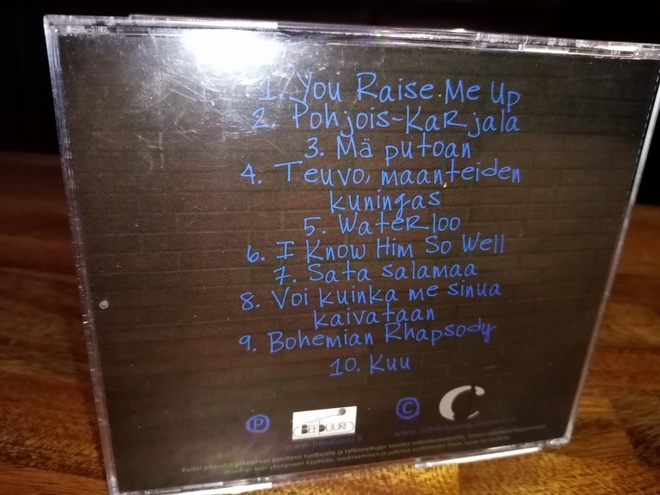 1. You Raise Me Up
2. Pohjois-Karjala
3. Mä putoan
4. Teuvo, maanteiden
kuningas
5. Waterloo
6. I Know Him So Well
7. Sata salamaa
8. Voi kuinka me sinua
kaivataan
9. Bohemian Rhapsody
10. Kuu
Ⓟ BEEDUURI © C
www.beeduuri.fi